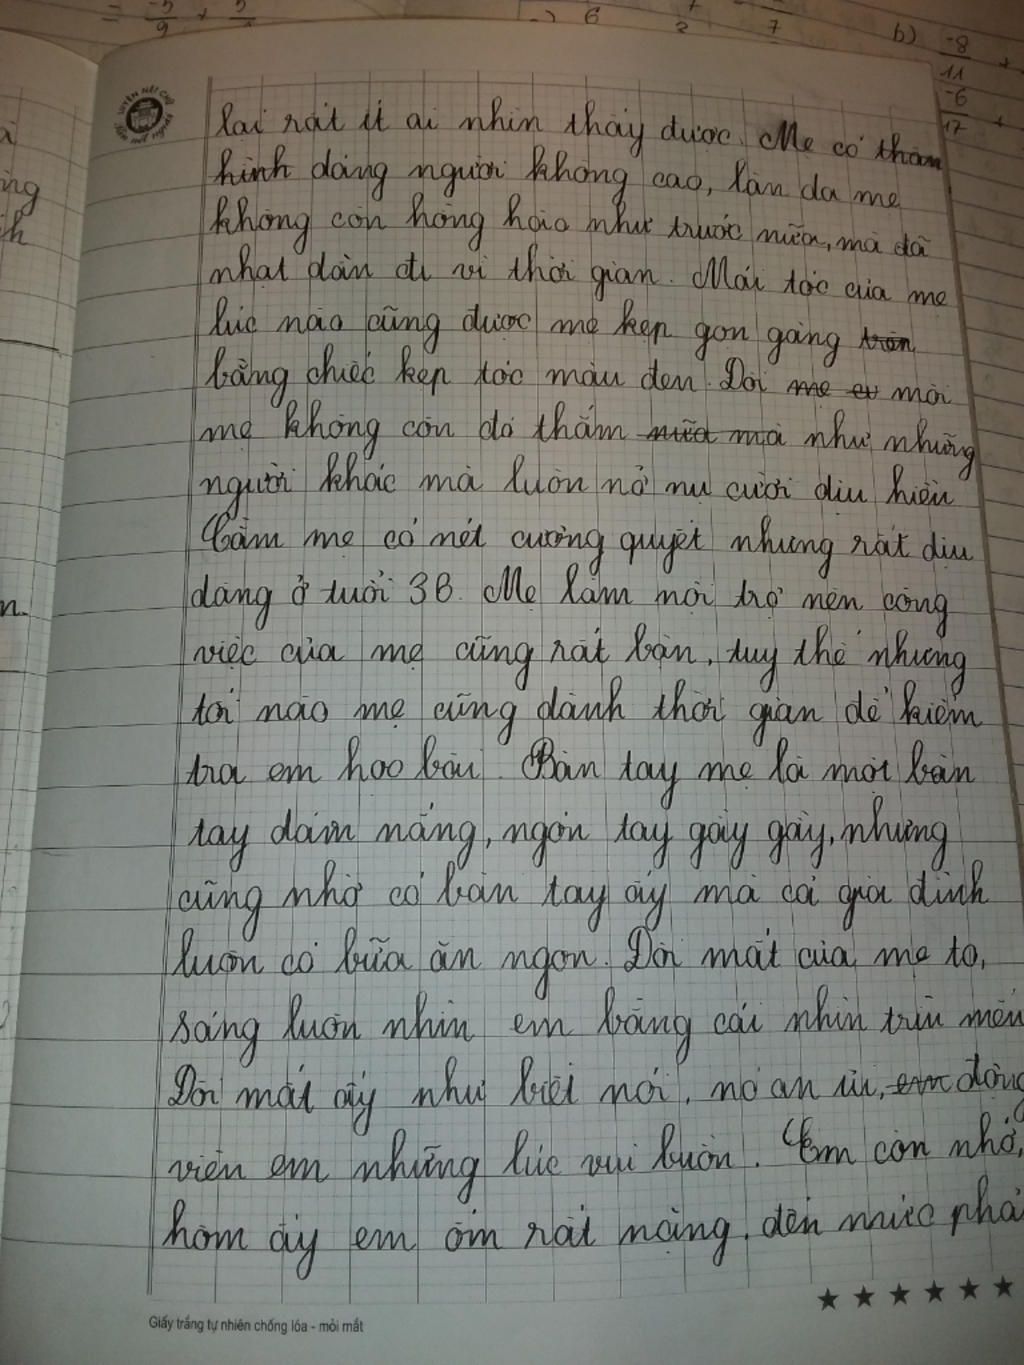 = -5/9 + 5
6
7/2
7
b) -8/11 +
-6/17 +
lại rất ít ai nhìn thấy được. Mẹ có thân
hình dáng người không cao, làn da mẹ
không còn hồng hào như trước nữa, mà đã
nhạt dần đi vì thời gian. Mái tóc của mẹ
lúc nào cũng được mẹ kẹp gọn gàng trên
bằng chiếc kẹp tóc màu đen. Đôi mẹ môi
mẹ không còn đỏ thắm nữa mà như những
người khác mà luôn nở nụ cười dịu hiền
Cằm mẹ có nét cương quyết nhưng rất dịu
dàng ở tuổi 38. Mẹ làm nội trợ nên công
việc của mẹ cũng rất bận, tuy thế nhưng
tối nào mẹ cũng dành thời gian để kiểm
tra em học bài. Bàn tay mẹ là một bàn
tay dám nắng, ngón tay gầy gầy, nhưng
cũng nhờ có bàn tay ấy mà cả gia đình
luôn có bữa ăn ngon. Đôi mắt của mẹ to,
sáng luôn nhìn em bằng cái nhìn trìu mến
Đôi mắt ấy như biết nói, nó an ủi, em động
viên em những lúc vui buồn. Em còn nhớ,
hôm ấy em ốm rất nặng, đến mức phả
Giấy trắng tự nhiên chống lóa - mỏi mắt